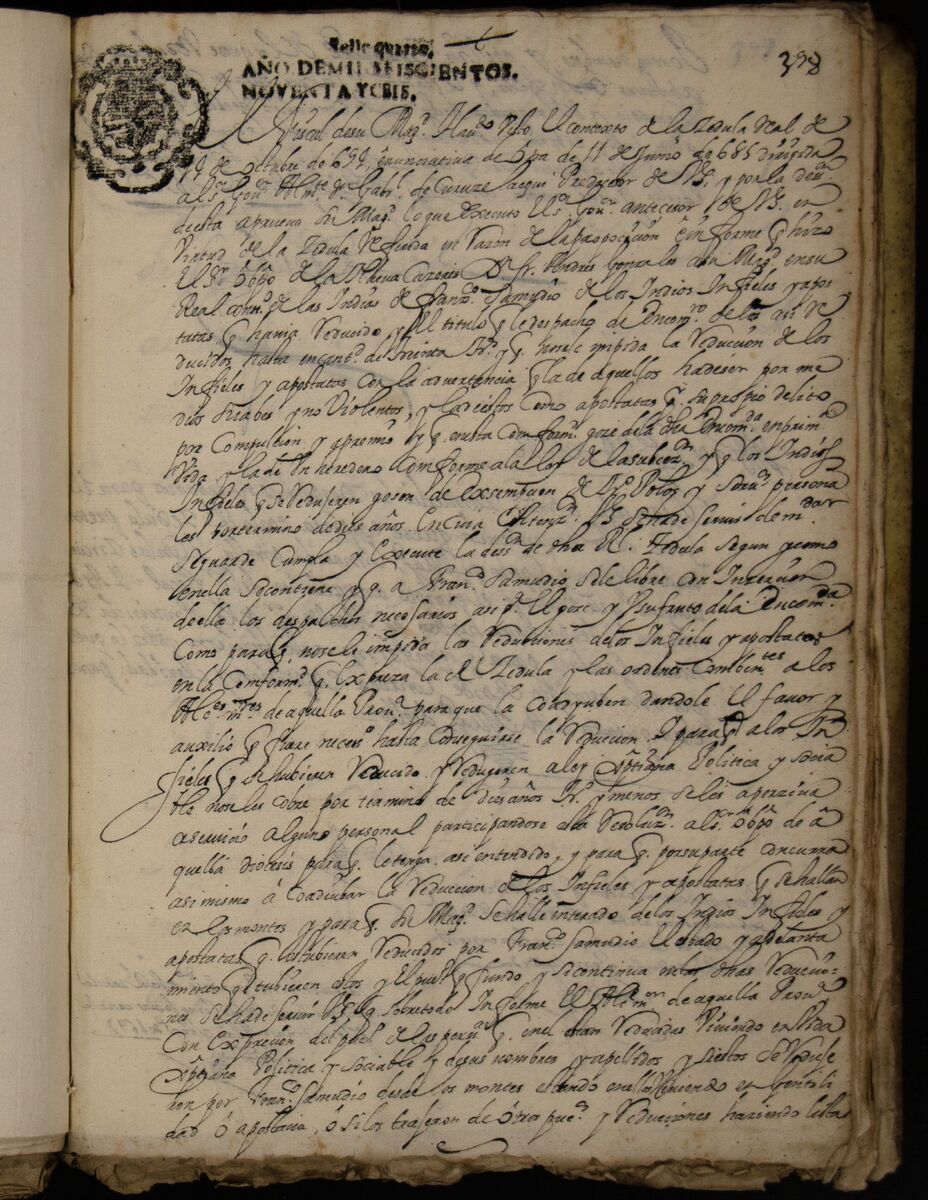 Sello quarto,
AÑO DE MIL SEISCIENTOS.
NOVENTA Y CEIS.
398
fiscal de su Magᵈ. Haviᵈᵒ Visto El contexto de la Zedula Real de
de octubre de 69 enunciativa de otra de 11 de Junio de 685 dirigida
al Sʳ Govʳ Almᵗᵉ Dⁿ Gabˡ. de Curuzelaequi Predecesor de V S. y por la
de esta aprueva Su Magᵈ. lo que executo El Sʳ. Govʳ. antecesor de V S. en
Virtud de la Zedula Referida en Razon de la proposicion e informe q̃ hizo
El Sʳ Obpo de la Nueva Cazeris Dⁿ fr. Andres gonzales a su Magᵈ. en su
Real consᵒ. de las Indias de franᶜᵒ. Samudio de los Indios Infieles y apos
tatas q̃ havia Reducido y El titulo q̃ le despacho de Encomʳᵒ de los asi Re
ducidos hasta en cantᵈ. de treinta y q̃ no se le impida la Reducion de los
Infieles y apostatas con la advertencia q̃ la de aquellos ha de ser por me
dios suabes y no Violentos, y la de estos como apostatas q̃. su propio delito
por Compulcion y apremio y q̃. en esta Comfⁿ. goze de la dha Encomᵈᵃ en primᵃ
Vida y la de Un heredero comforme a la ley de la subceⁿ. y q̃ los Indios
Infieles q̃ se Redugeren gosen de Exsempcion de Polos y servᵒˢ persona
les por termino de dies años. En cuia Atenᶻⁿ. V S se ha de servir de mᵈᵃʳ
se guarde Cumpla y Execute la de dha Rˡ. Zedula segun y como
en ella se contiene y q̃. a Franᶜᵒ Samudio se le libre con Incercion
de ella los despachos necesarios asi pᵃ. El goze y Usufruto de la Encomᵈᵃ
Como para q̃ no se le impida las Reduciones de los Infieles y apostatas
en la Comformᵈ. q̃. Expreza la Rˡ Zedula y las ordenes Combenᵗᵉˢ a los
Alcᵈᵉˢ mʳᵉˢ de aquella Provᵃ. para que la Coadyuben dandole El favor y
auxilio q̃ fuere necesᵒ hasta conseguirse la Reducion. Y para q̃ a los In
fieles q̃ se hubieren Reducido y Redugeren a ley Xptiana Politica y socia
ble no se les cobre por termino de dies años y menos se les aperziva
a servicio alguno personal participandose esta Resoluzⁿ. al Sʳ Obpo de a
quella Diocesis para q̃. lo tenga asi entendido, y para q̃. por su parte concurra
asimismo á Coadiubar la Reduccion de los Infieles y apostatas q̃ se hallan
en los montes y para q̃. Su Magᵈ. se halle enterado de los Indios Infieles y
apostatas q̃. estubieren Reducidos por Franᶜᵒ Samudio El estado y adelanta
miento q̃ tubieren estos y El pueᵇᵒ q̃ fundo y se continua en las dhas Reducio-
nes se ha de servir V S. q̃ sobre todo Informe El Alcᵈᵉ mᵒʳ de aquella Provᵃ.
Con Expresion del puᵇˡᵒ. de las persᵃˢ q̃. en el estan Reducidas Viviendo en Vida
Xptiana Politica y sociable y de sus nombres y apellidos y si estos se Reduje
ron por Franᶜᵒ. Samudio desde los montes estando en ellos Viviendo en gentili
dad ó apostacia, ó si los trajeron de otros pueᵒˢ y Reduciones haziendo lista